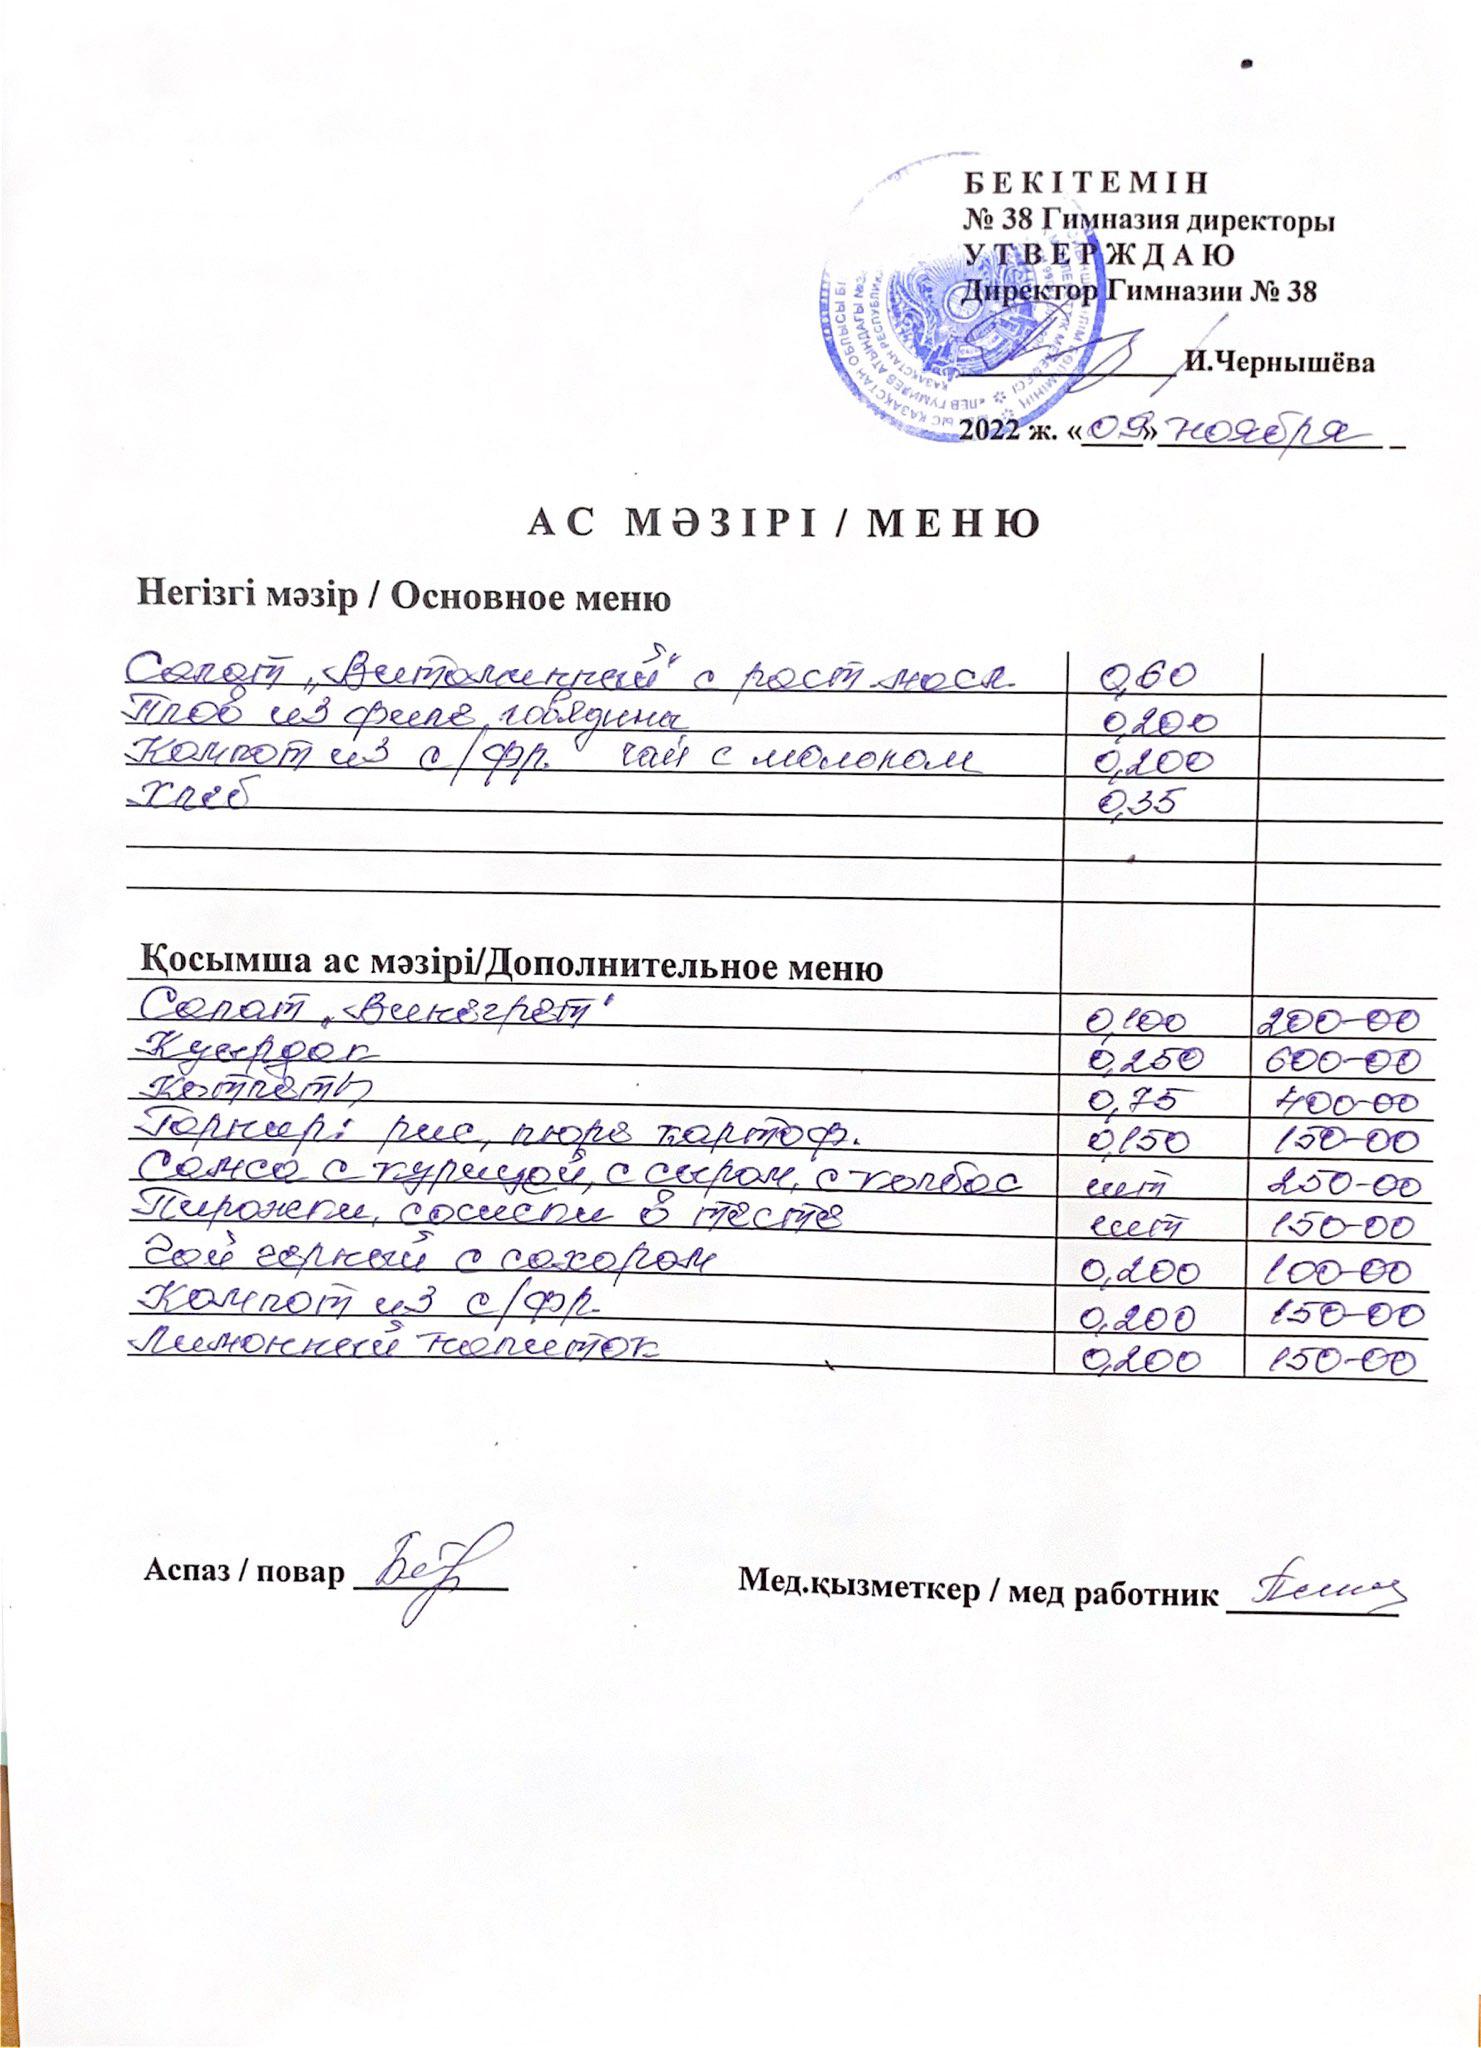 БЕКІТЕМІН
№ 38 Гимназия директоры
УТВЕРЖДАЮ
Директор Гимназии № 38
И.Чернышёва
2022 ж. «09» ноября
АС МӘЗІРІ / МЕНЮ
Негізгі мәзір / Основное меню
Салат „Витаминный" с раст масл. 0,60
Плов из филе говядины 0,200
Компот из с/фр. чай с молоком 0,200
Хлеб 0,35
Қосымша ас мәзірі/Дополнительное меню
Салат „Винегрет" 0,100 200-00
Куырдак 0,250 600-00
Котлеты 0,75 400-00
Гарнир: рис, пюре картоф. 0,150 150-00
Самса с курицой, с сыром, с колбас шт 250-00
Пирожки, сосиски в тесте шт 150-00
Чай черный с сахаром 0,200 100-00
Компот из с/фр. 0,200 150-00
Лимонный напиток 0,200 150-00
Аспаз / повар
Мед.қызметкер / мед работник